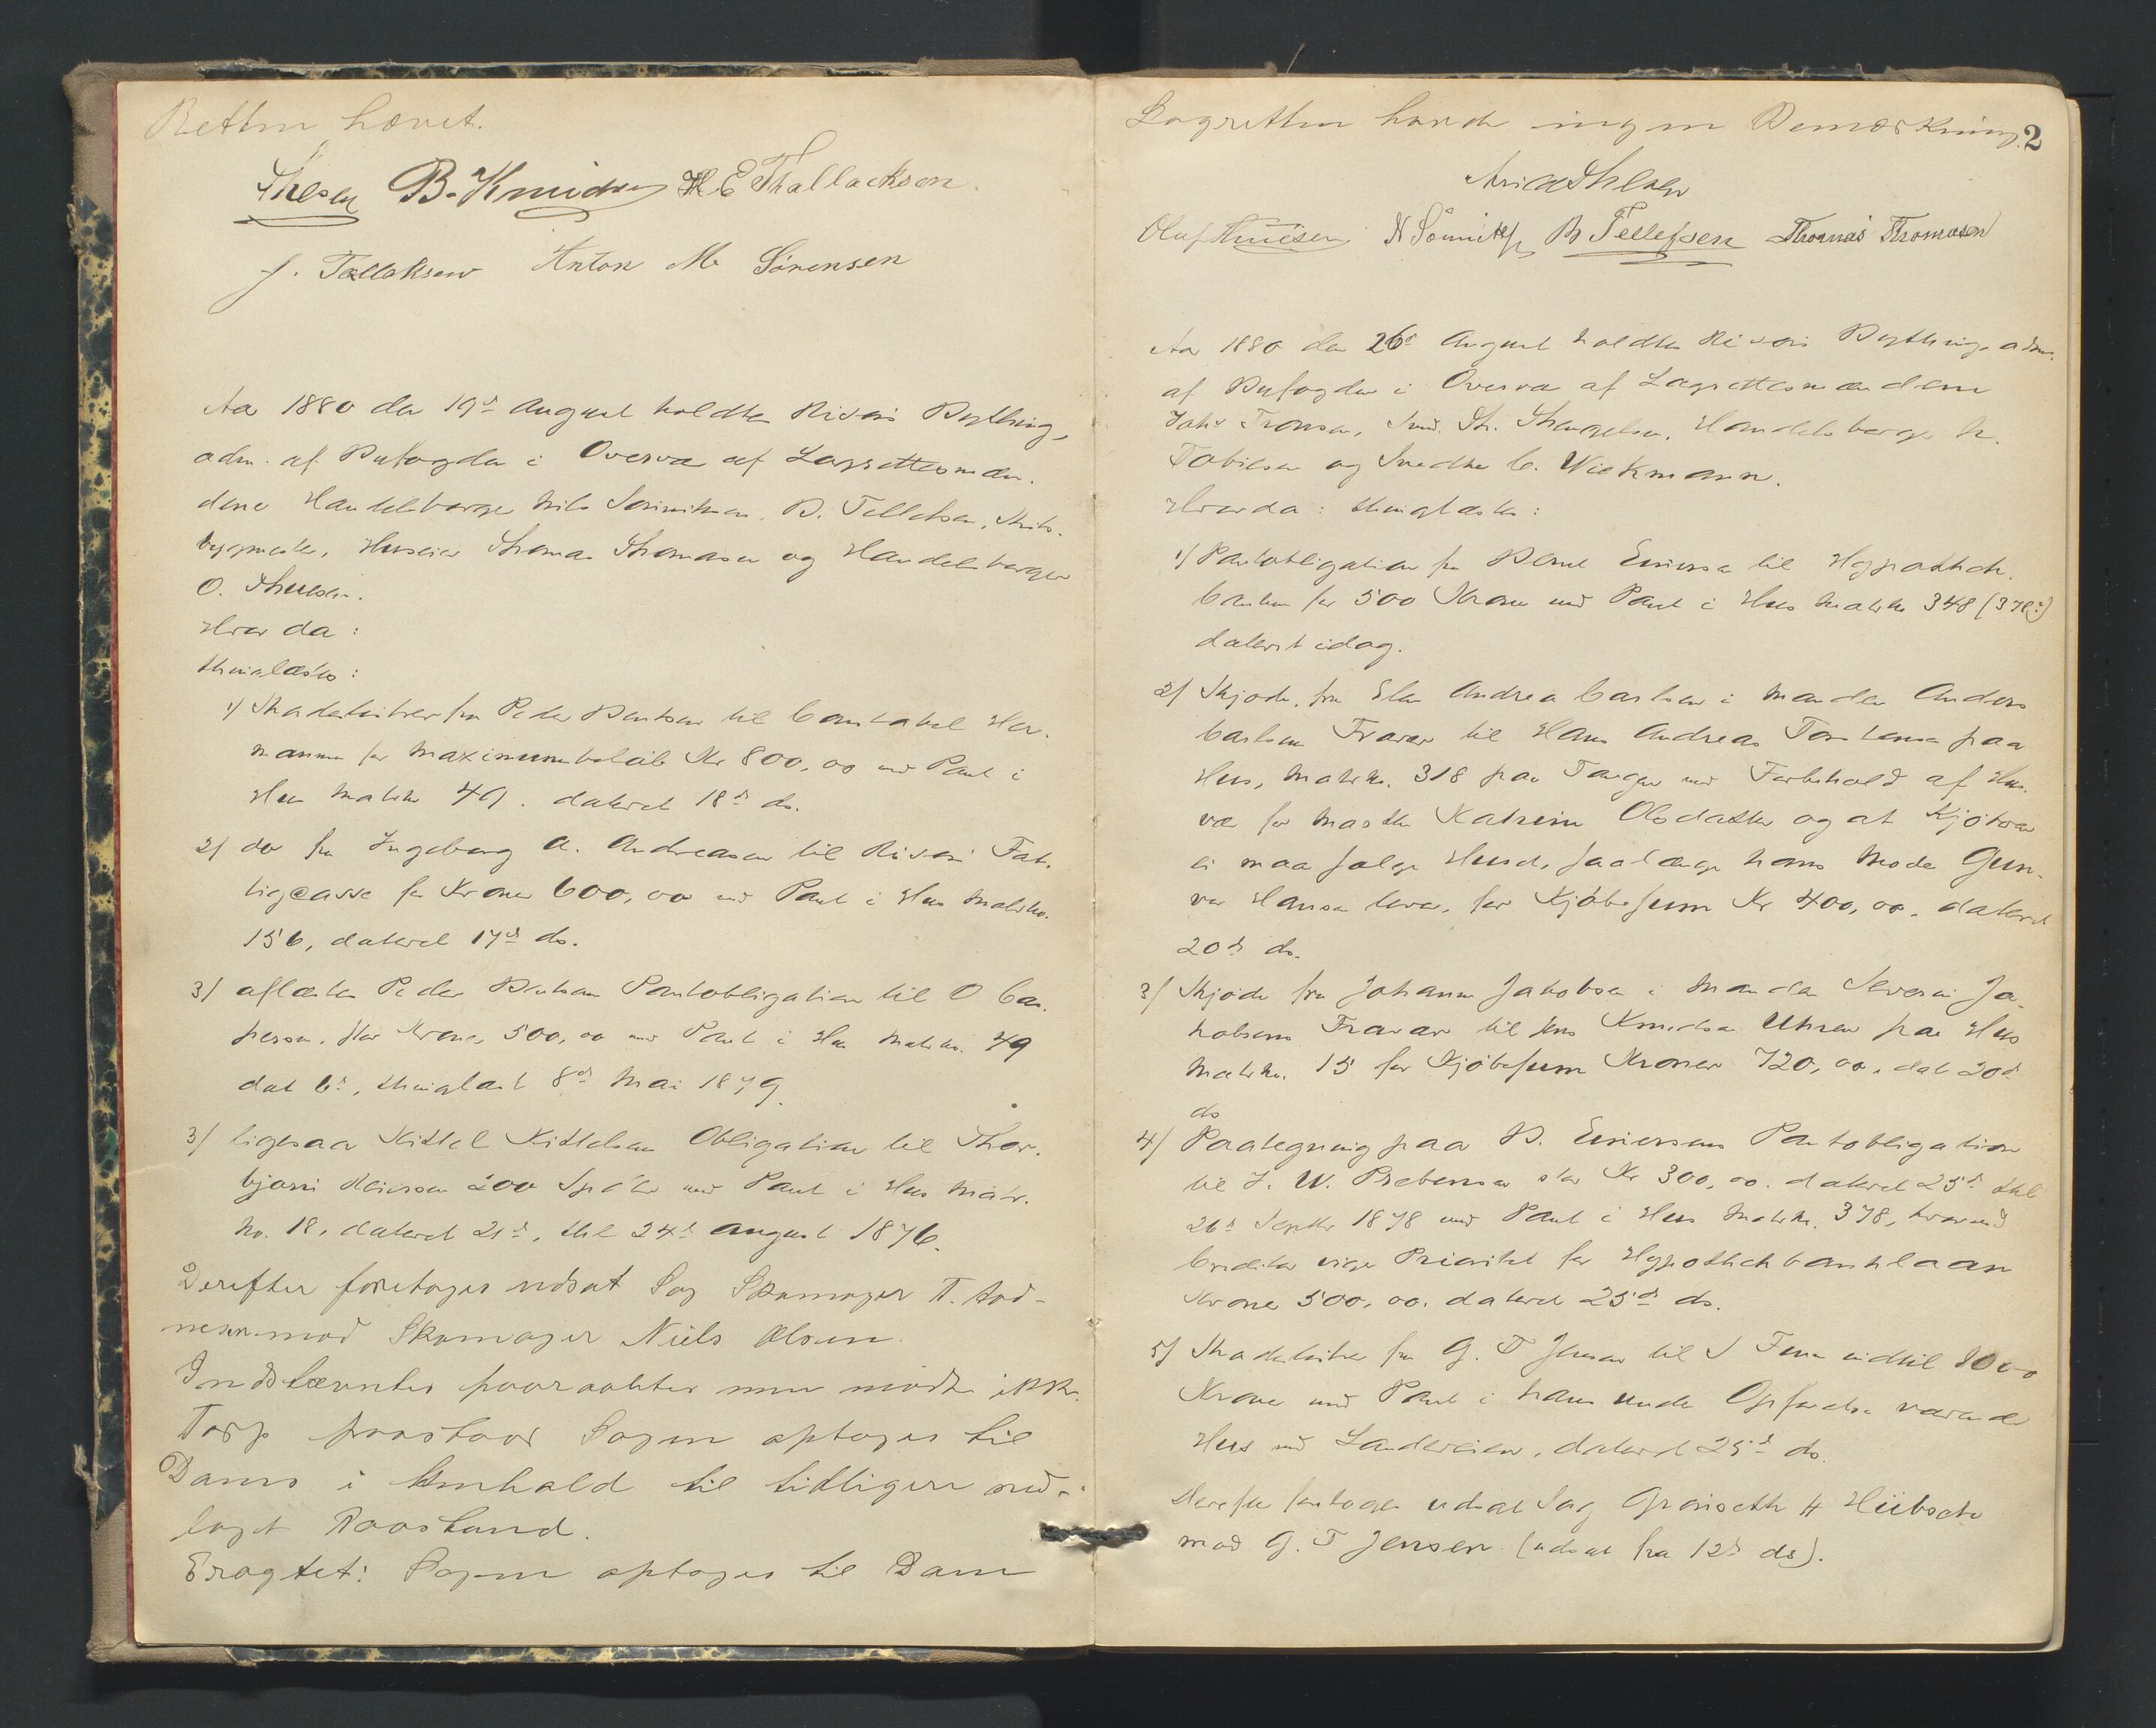 Retten hævet.
Thesen B. Knudsen H E Thallacksen
J. Tallaksen Anton M. Sörensen
Aar 1880 den 19d August holdtes Risörs Bything,
adm. af Byfogden i Overvær af Lagrettesmæn-
dene Handelsborger Nils Sörnitsen, B. Tellefsen, Skibs-
bygmester, Huseier Thomas Thomasen og Handelsborger
O. Thuesen.
Hvorda:
thinglæstes:
1) Skadesløsbrev fra Peder Bentsen til Constabel Her-
mansen for Maximumsbelöb Kr 800,00 med Pant i
Hus Matr No 49. dateret 18d ds.
2) do fra Ingeborg A. Andreasen til Risörs Fat-
tigcasse for Kroner 600,00 med Pant i Hus Matr No.
156, dateret 17d ds.
3) aflæstes Peder Bentsens Pantobligation til O Cas-
persen, stor Kroner 500,00 med Pant i Hus Matr No. 49
dat 6d, thinglæst 8d Mai 1879.
3) ligesaa Kittel Kittelsens Obligation til Thor-
björn Reiersen 200 Spdlr med Pant i Hus Matr.
No. 18, dateret 21d, thl 24d August 1876.
Derefter foretoges udsat Sag Skomager T. Aad-
nesen mod Skomager Niels Olsen.
Indstævnte paaraabtes men mödte ikke.
Torp paastaar Sagen optages til
Doms i Henhold til tidligere ned-
lagt Paastand.
Eragtet: Sagen optages til Dom
Lagretten havde ingen Bemærkning. 2
Olaf Thuesen N Sörnitsen B Tellefsen Thomas Thomasen
Aar 1880 den 26d August holdtes Risörs Bything adm.
af Byfogden i Overvær af Lagrettesmændene
Jahs Tronsen, Smd. Th. Thengelsen, Handelsborger N.
Tobiesen og Snedker C. Wiekmann.
Hvorda: thinglæstes:
1) Pantobligation fra Bernt Eriersen til Hypothek-
banken for 500 Kroner med Pant i Hus Matr No 348 (378?)
dateret idag.
2) Skjöde fra Elen Andrea Carlsen i Manden Anders
Carlsens Fravær til Hans Andreas Torstensen paa
Hus, Matr No. 318 paa Tangen med Forbehold af Hus-
vær for Marthe Katrine Olsdatter og at Kjöberen
ei maa sælge Huset, saalænge hans Moder Gun-
vor Hansen lever, for Kjöbesum Kr 400,00. dateret
20d ds.
3) Skjöde fra Johanne Jakobsen i Manden Severin Ja-
kobsens Fravær til Jens Knudsen Uhren paa Hus
Matr No. 15 for Kjöbesum Kroner 720,00. dat 20d
ds
4) Paategning paa B. Eriersens Pantobligation
til J. W. Prebensen stor Kr 300,00. dateret 25d thl
26d Septbr 1878 med Pant i Hus Matr No. 378, hvorved
Creditor viger Prioritet for Hypothekbanklaan
Kroner 500,00. dateret 25d ds.
5) Skadesløsbrev fra G. T Jensen til J Finne indtil 8000
Kroner med Pant i hans under Opførelse værende
Hus med Landereier, dateret 25d ds.
Derefter foretoges udsat Sag Grönseth & Hübsche
mod G. T Jensen. (udsat fra 12d ds).